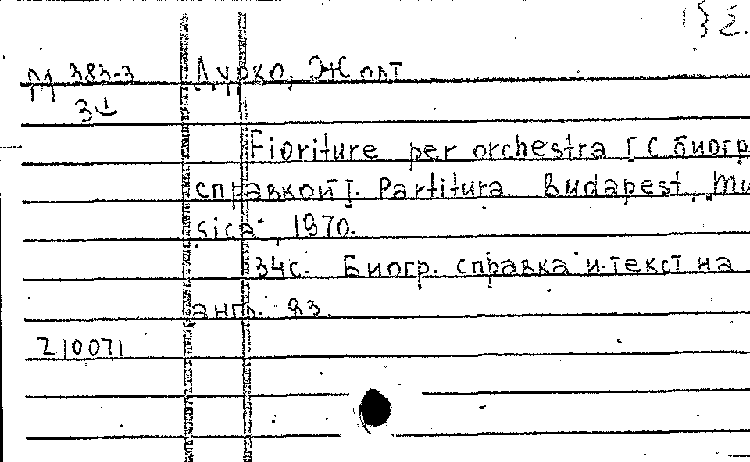 М 383-3 Дурко, Жолт
34
Fioriture per orchestra [С биогр.
справкой]. Partitura. Budapest, Mu-
sica, 1970.
34 с. Биогр. справка и текст на
англ. яз.
210071